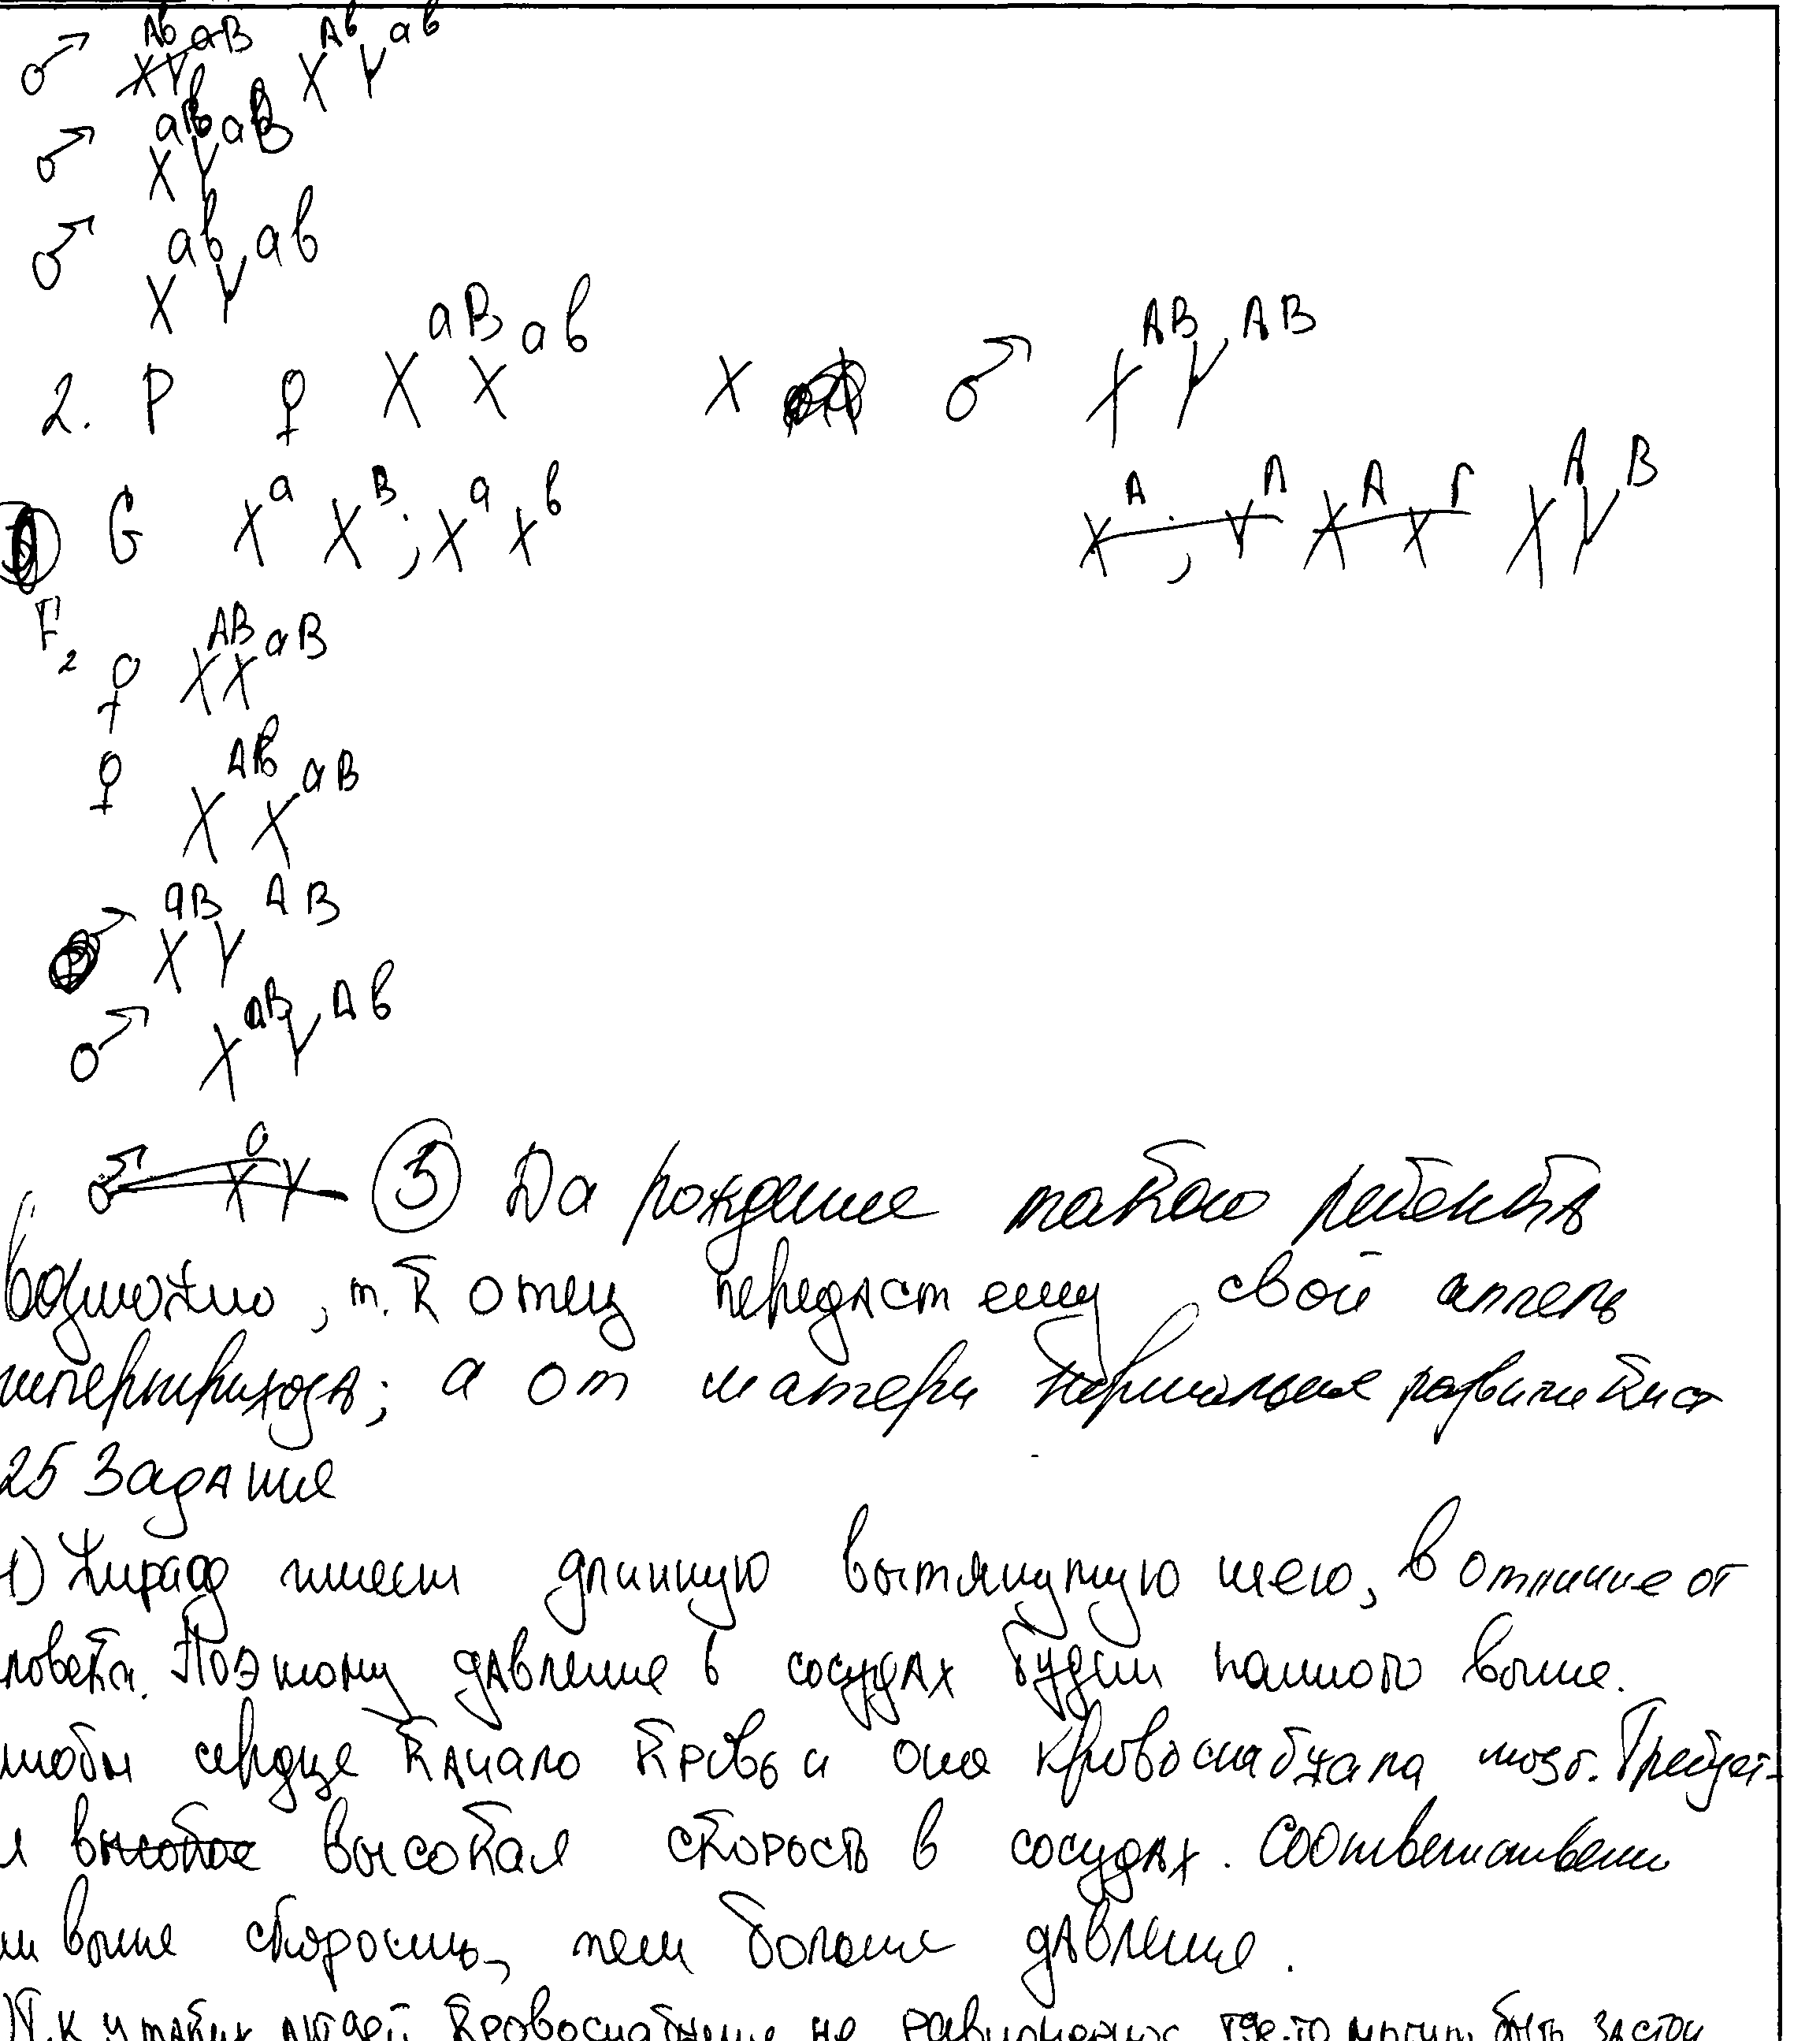 ♂ X^Aв Y^ав
♂ X Y
♂ X^ав Y^ав
2. P ♀ X^аВ X^ав X ♂ X^АВ Y^АВ
G X^а X^В; X^а X^в X^А Y^В
F₂
♀ X^АВ X^аВ
♀ X X^аВ
♂ X^аВ Y^АВ
♂ X^аВ Y^Ав
③ Да рождение такого ребенка
возможно, т.к отец передаст ему свой аллель
гипертрихоза; а от матери нормальное развитие кист
25 Задание
1) Жираф имеет длинную вытянутую шею, в отличие от
ловека. Поэтому давление в сосудах будет намного выше.
чтобы сердце качало кровь и она кровоснабжала мозг. Требует-
я высокая скорость в сосудах. Соответственно
м выше скорость, тем больше давление.
)Т.к у таких людей кровоснабжение не равномерное где-то могут быть застои